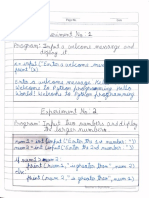 Date
Experiment No. 1
Program: Input a welcome message and
display it.
x = input ("Enter a welcome message")
print (x)
Enter a welcome message Hello
Welcome to Python programming Hello
World Welcome to Python programming
Experiment No. 2
Program: Input two numbers and display
the larger number.
num1 = int(input("Enter the 1st number: "))
num2 = int(input("Enter the 2nd number: "))
if num1 > num2:
print (num1, "is greater than", num2)
else:
print (num2, "is greater than", num1)